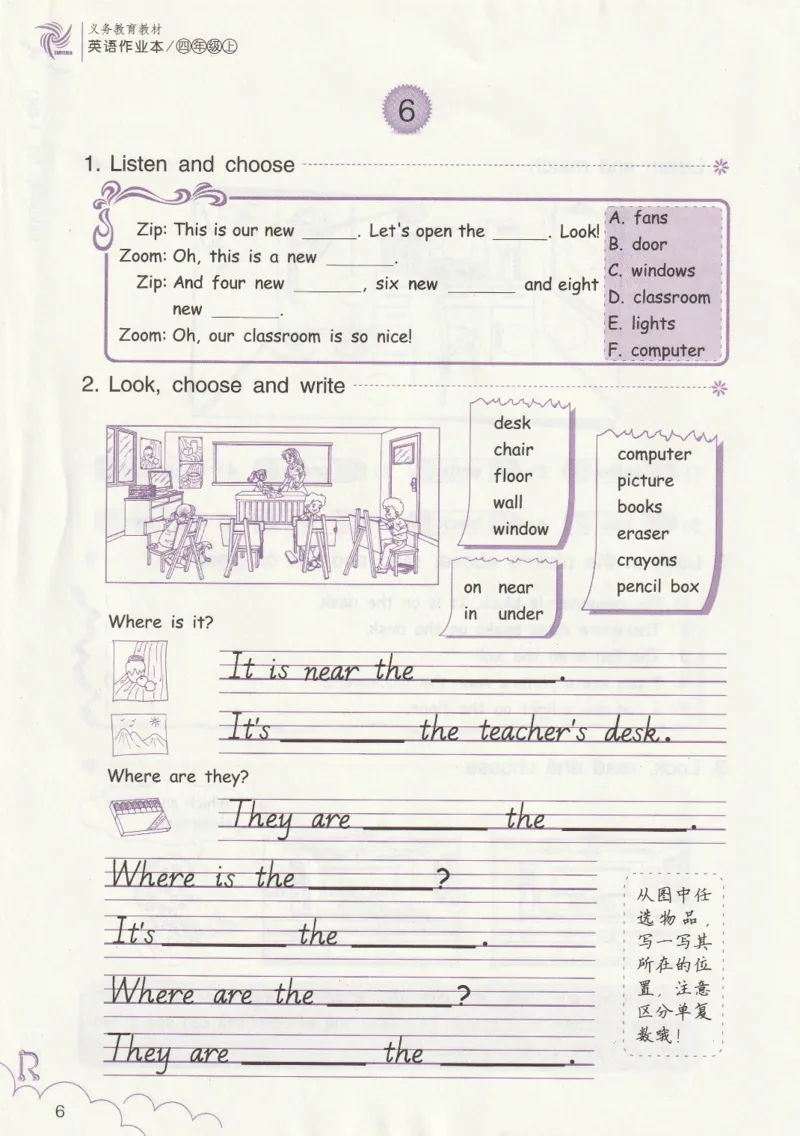 义务教育教材
英语作业本/四年级上
6
1. Listen and choose
Zip: This is our new ______. Let's open the ______. Look!
Zoom: Oh, this is a new ______.
Zip: And four new ______, six new ______ and eight
new ______.
Zoom: Oh, our classroom is so nice!
A. fans
B. door
C. windows
D. classroom
E. lights
F. computer
2. Look, choose and write
desk
chair
floor
wall
window
computer
picture
books
eraser
crayons
pencil box
on near
in under
Where is it?
It is near the ______.
It's ______ the teacher's desk.
Where are they?
They are ______ the ______.
Where is the ______?
It's ______ the ______.
Where are the ______?
They are ______ the ______.
从图中任
选物品，
写一写其
所在的位
置，注意
区分单复
数哦！
R
6